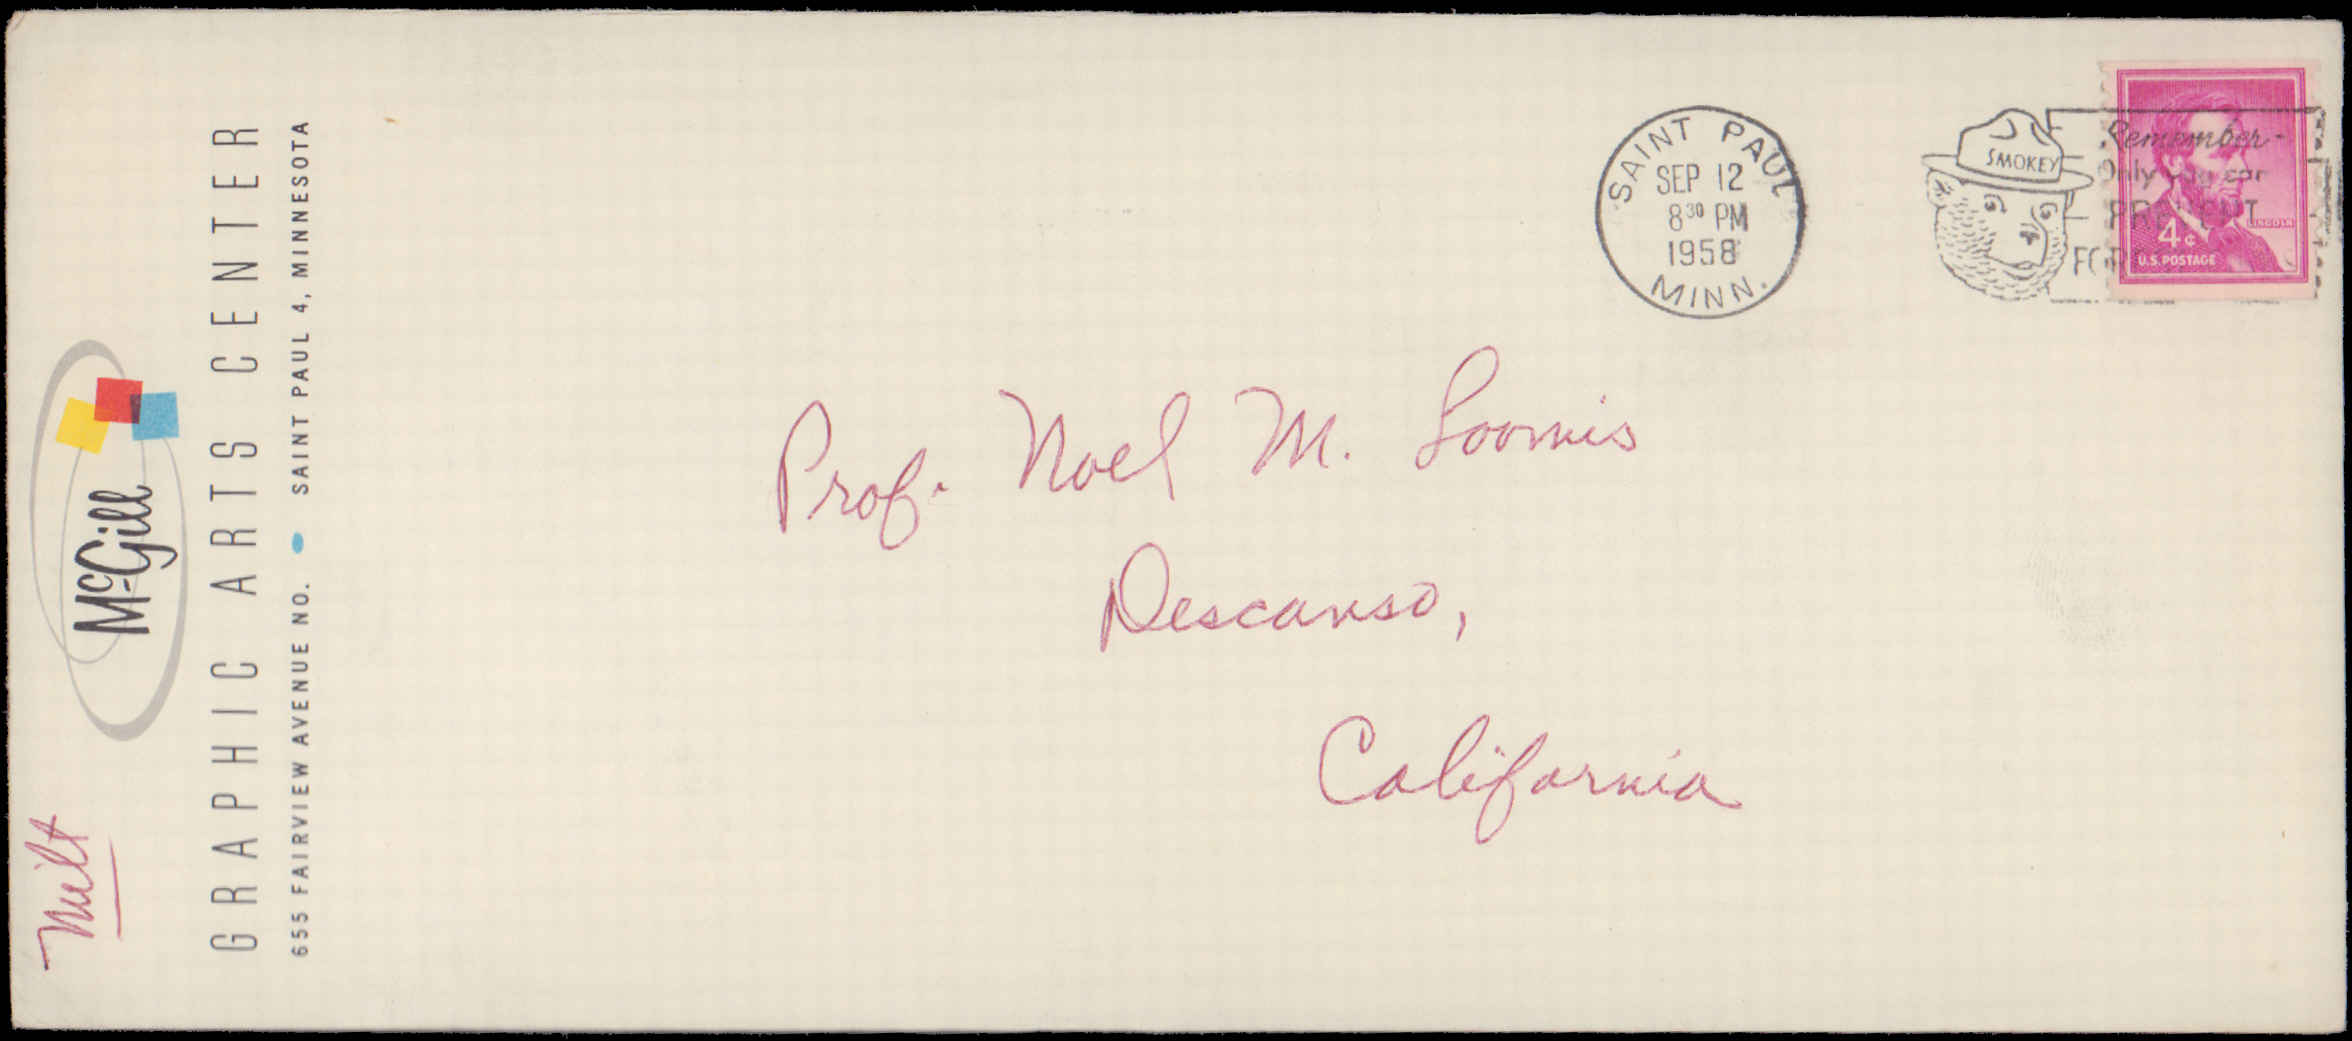 McGill
GRAPHIC ARTS CENTER
655 FAIRVIEW AVENUE NO. • SAINT PAUL 4, MINNESOTA
Milt
SAINT PAUL
SEP 12
8 30 PM
1958
MINN.
SMOKEY
Remember-
Only you can
PREVENT
FOR
LINCOLN
4¢
U.S. POSTAGE
Prof. Noel M. Loomis
Descanso,
California